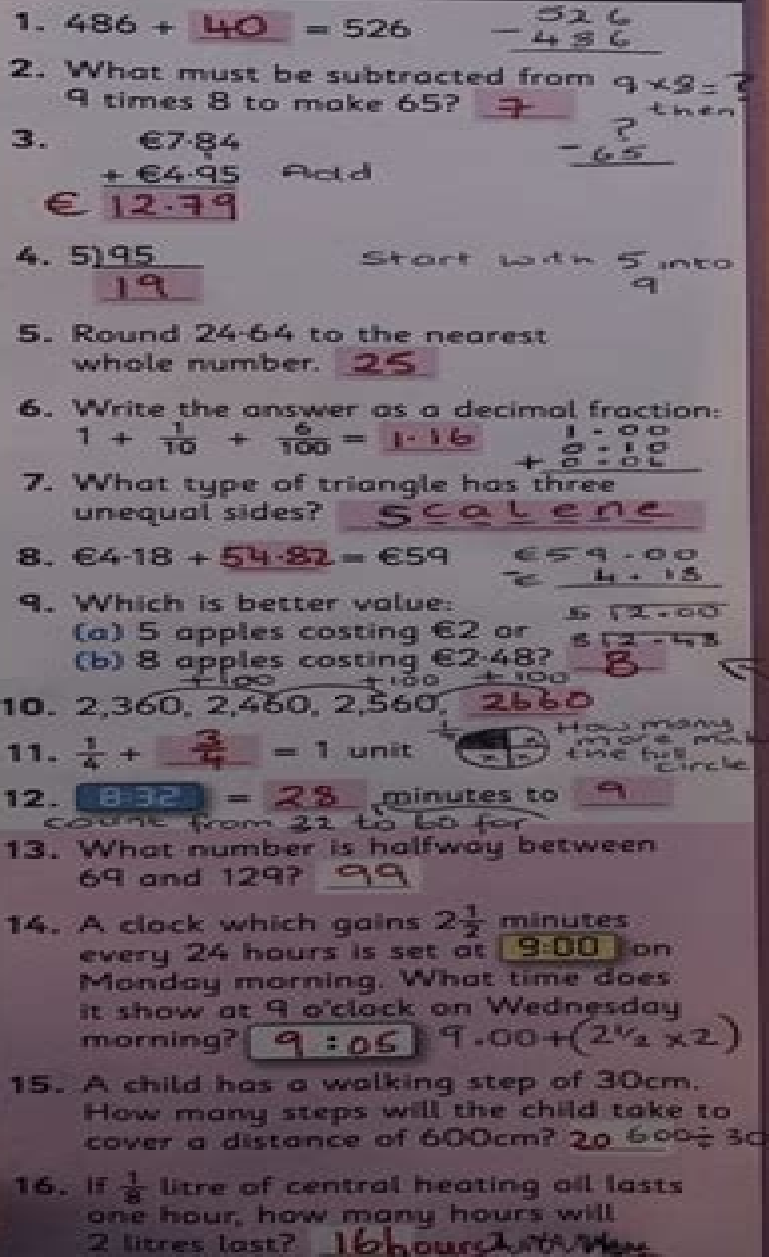 1. 486 + 40 = 526
526
- 486
2. What must be subtracted from
9 times 8 to make 65? 7
9 x 8 = ?
then
?
- 65
3. €7·84
+ €4·95 Add
€ 12.79
4. 5)95
19
Start with 5 into
9
5. Round 24·64 to the nearest
whole number. 25
6. Write the answer as a decimal fraction:
1 + 1/10 + 6/100 = 1.16
1.00
0.10
+ 0.06
7. What type of triangle has three
unequal sides? scalene
8. €4·18 + 54.82 = €59
€59.00
- € 4.18
9. Which is better value:
(a) 5 apples costing €2 or
(b) 8 apples costing €2·48? 8
5)2.00
8)2.48
+100 +100 +100
10. 2,360, 2,460, 2,560, 2660
11. 1/4 + 3/4 = 1 unit
How many
more
the full
circle
12. 8:32 = 28 minutes to 9
count from 32 to 60 for
13. What number is halfway between
69 and 129? 99
14. A clock which gains 2 1/2 minutes
every 24 hours is set at 9:00 on
Monday morning. What time does
it show at 9 o'clock on Wednesday
morning? 9:05 9.00+(2 1/2 x2)
15. A child has a walking step of 30cm.
How many steps will the child take to
cover a distance of 600cm? 20 600÷30
16. If 1/8 litre of central heating oil lasts
one hour, how many hours will
2 litres last? 16 hours